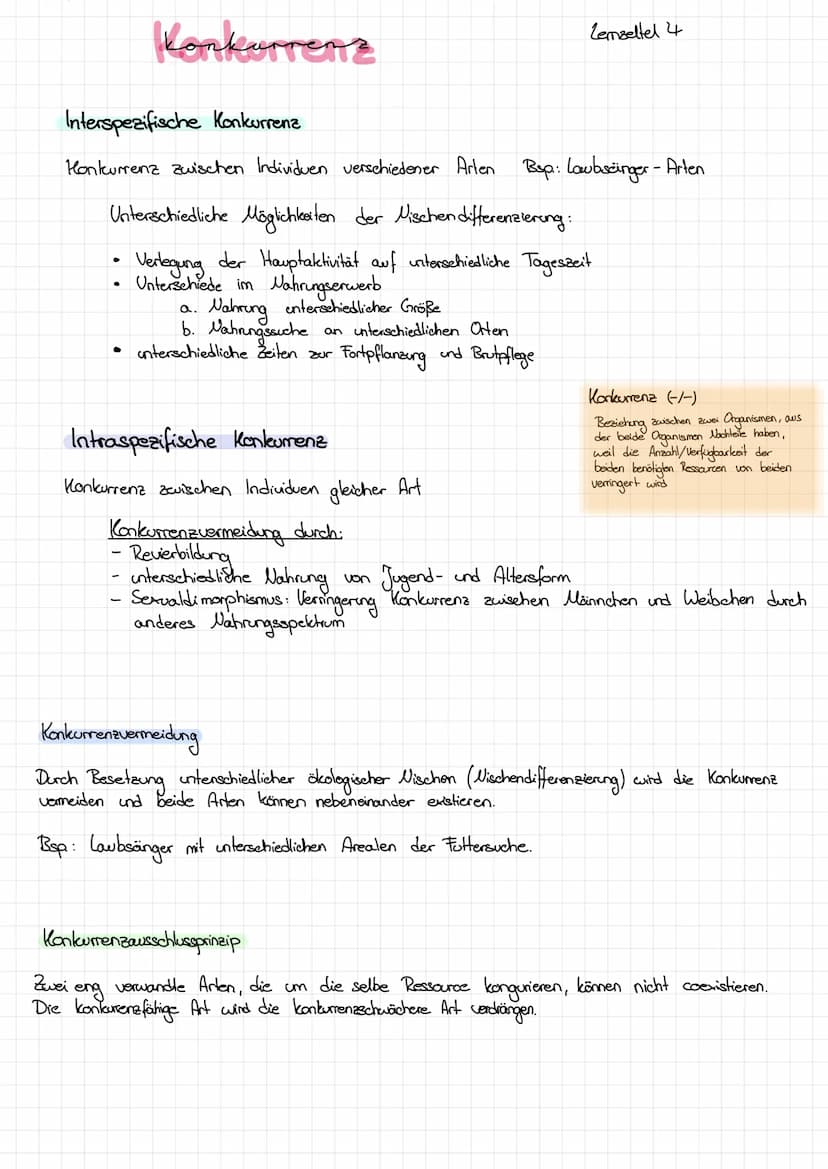 Konkurrenz
Lernzettel 4
Interspezifische Konkurrenz
Konkurrenz zwischen Individuen verschiedener Arten Bsp: Laubsänger - Arten
Unterschiedliche Möglichkeiten der Nischendifferenzierung:
• Verlegung der Hauptaktivität auf unterschiedliche Tageszeit
• Unterschiede im Nahrungserwerb
a. Nahrung unterschiedlicher Größe
b. Nahrungssuche an unterschiedlichen Orten
• unterschiedliche Zeiten zur Fortpflanzung und Brutpflege
Konkurrenz (-/-)
Beziehung zwischen zwei Organismen, aus
der beide Organismen Nachteile haben,
weil die Anzahl/Verfügbarkeit der
beiden benötigten Ressourcen von beiden
verringert wird
Intraspezifische Konkurrenz
Konkurrenz zwischen Individuen gleicher Art
Konkurrenzvermeidung durch:
- Revierbildung
- unterschiedliche Nahrung von Jugend- und Altersform
- Sexualdimorphismus: Verringerung Konkurrenz zwischen Männchen und Weibchen durch
anderes Nahrungsspektrum
Konkurrenzvermeidung
Durch Besetzung unterschiedlicher ökologischer Nischen (Nischendifferenzierung) wird die Konkurrenz
vermeiden und beide Arten können nebeneinander existieren.
Bsp: Laubsänger mit unterschiedlichen Arealen der Futtersuche.
Konkurrenzausschlussprinzip
Zwei eng verwandte Arten, die um die selbe Ressource kongurieren, können nicht coexistieren.
Die konkurenzfähige Art wird die konkurrenzschwächere Art verdrängen.